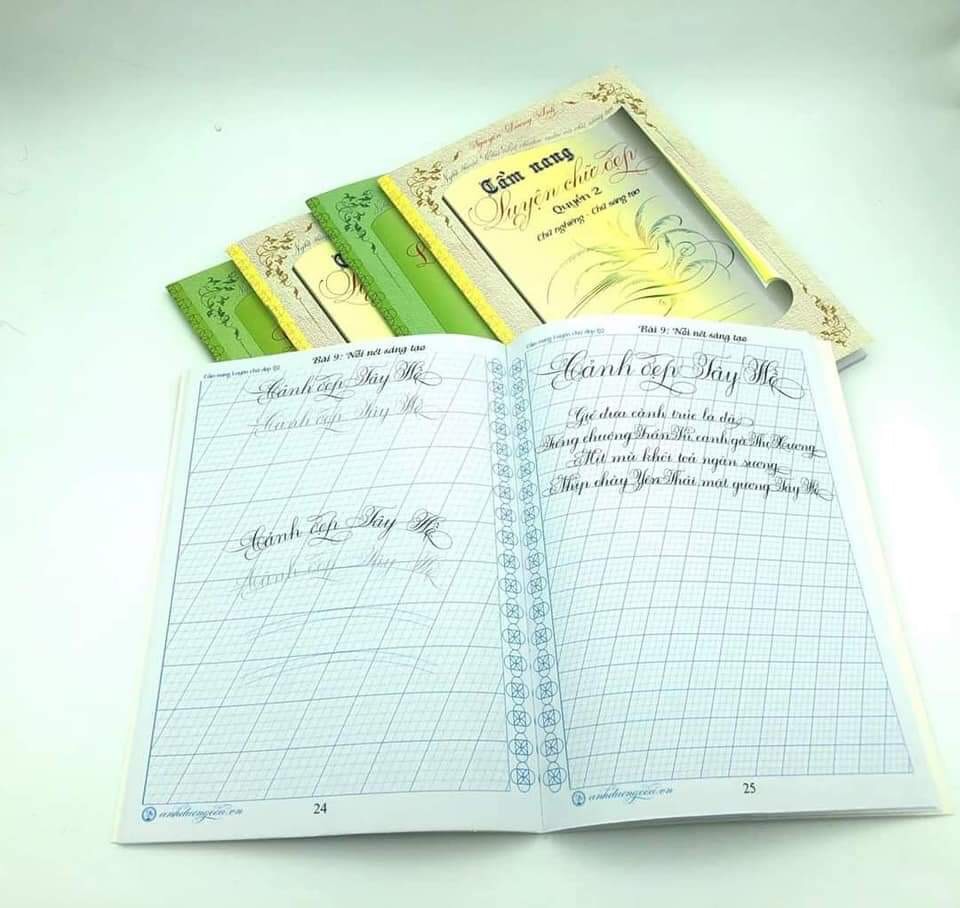 Nguyễn Dương Anh
Cẩm nang
Luyện chữ đẹp
Quyển 2
Chữ nghiêng - Chữ sáng tạo
Cẩm nang luyện chữ đẹp Q2
Bài 9: Nối nét sáng tạo
Cảnh đẹp Tây Hồ
Cảnh đẹp Tây Hồ
Cảnh đẹp Tây Hồ
Cảnh đẹp Tây Hồ
24
Cẩm nang luyện chữ đẹp Q2
Bài 9: Nối nét sáng tạo
Cảnh đẹp Tây Hồ
Gió đưa cành trúc la đà
Tiếng chuông Trấn Vũ canh gà Thọ Xương
Mịt mù khói toả ngàn sương
Nhịp chày Yên Thái mặt gương Tây Hồ
25